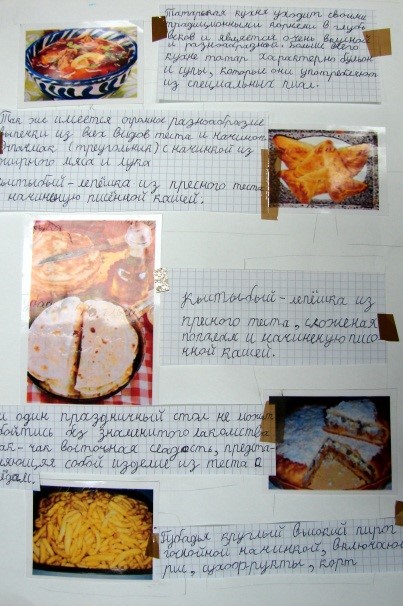 Татарская кухня уходит своими
традиционными корнями в глубь
веков и является очень вкусной
и разнообразной больше всего
кухне татар характерно бульон
и супы, которые они употребляют
из специальных пиал.
Так же имеется огромное разнообразие
выпечки из всех видов теста и начинок
(треугольник) с начинкой из
жирного мяса и лука
кыстыбый-лепёшка из пресного теста
начиненую пшённой кашей.
Кыстыбый-лепёшка из
пресного теста, сложеная
пополам и начиненую пшо
нной кашей.
и один праздничный стол не может
обойтись без знаменитого лакомства
ак-чак восточная сладость, предста-
ляющая собой изделие из теста с
мёдом.
Губадья круглый высокий пирог
с начинкой, включаю
рис, сухофрукты, корт